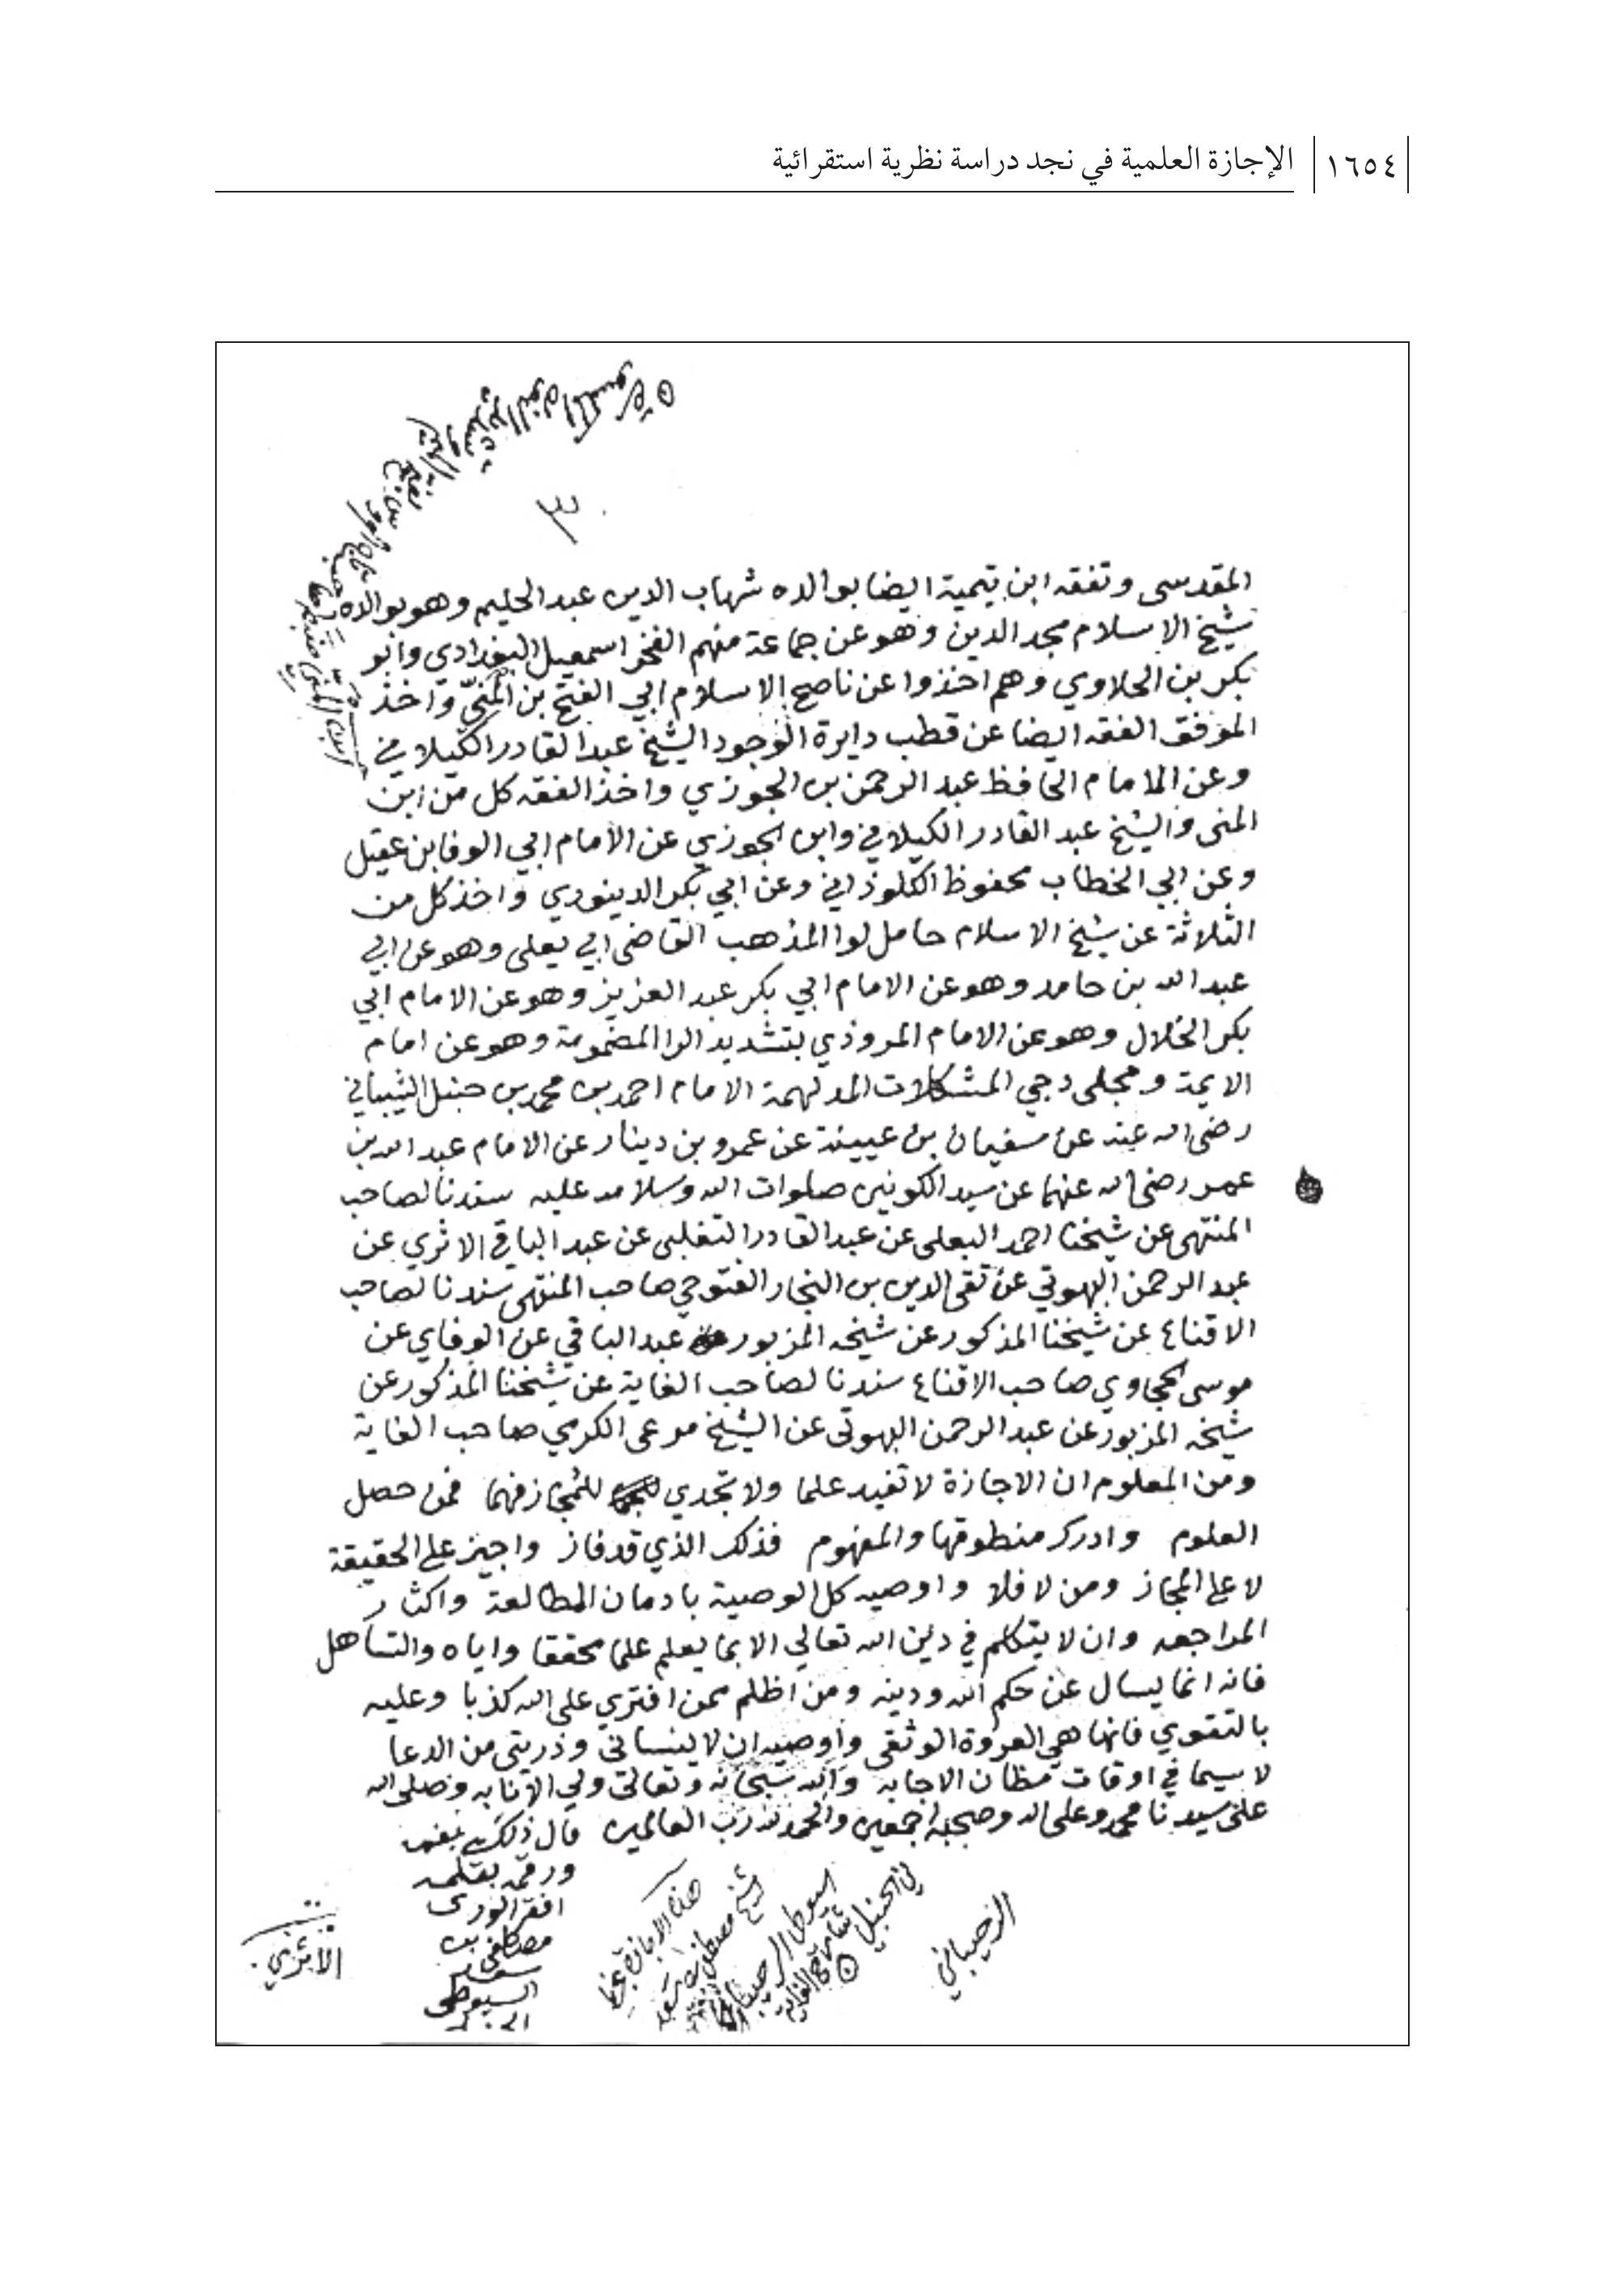 ١٦٥٤ الإجازة العلمية في نجد دراسة نظرية استقرائية
المقدسى وتفقه ابن تيمية ايضا بوالده شهاب الدين عبد الحليم وهو بوالده
شيخ الاسلام مجد الدين وهو عن جماعة منهم الفخر اسمعيل البغدادي وابو
بكر بن الحلاوي وهم اخذوا عن ناصح الاسلام ابي الفتح بن المَنّي واخذ
الموفق الفقه ايضا عن قطب دايرة الوجود الشيخ عبد القادر الكيلاني
وعن الامام الحافظ عبد الرحمن بن الجوزي واخذ الفقه كل من ابن
المنى والشيخ عبد القادر الكيلاني وابن الجوزي عن الامام ابي الوفا بن عقيل
وعن ابي الخطاب محفوظ الكلوذاني وعن ابي بكر الدينوري واخذ كل من
الثلاثة عن شيخ الاسلام حامل لوا المذهب القاضى ابي يعلى وهو عن ابي
عبد الله بن حامد وهو عن الامام ابي بكر عبد العزيز وهو عن الامام ابي
بكر الخلال وهو عن الامام المروذي بتشديد الرا المضمومة وهو عن امام
الايمة ومجلى دجي المشكلات المدلهمة الامام احمد بن محمد بن حنبل الشيباني
رضى الله عنه عن سفيان بن عيينة عن عمرو بن دينار عن الامام عبد الله بن
عمر رضى الله عنهما عن سيد الكونين صلوات الله وسلامه عليه سندنا لصاحب
المنتهى عن شيخنا احمد البعلى عن عبد القادر التغلبى عن عبد الباقي الاثري عن
عبد الرحمن البهوتي عن تقى الدين بن النجار الفتوحي صاحب المنتهى سندنا لصاحب
الاقناع عن شيخنا المذكور عن شيخه المزبور عبد الباقي عن الوفاي عن
موسى الحجاوي صاحب الاقناع سندنا لصاحب الغاية عن شيخنا المذكور عن
شيخه المزبور عن عبد الرحمن البهوتى عن الشيخ مرعى الكرمي صاحب الغاية
ومن المعلوم ان الاجازة لا تفيد علما ولا تجدي للمُجاز فهما فمن حصل
العلوم وادرك منطوقها والمفهوم فذلك الذي قد فاز واجيز على الحقيقة
لا على المجاز ومن لا فلا واوصيه كل الوصية بادمان المطالعة واكثار
المراجعه وان لا يتكلم في دين الله تعالي الا بما يعلم علما محققا واياه والتساهل
فانه انما يسال عن حكم الله ودينه ومن اظلم ممن افتري على الله كذبا وعليه
بالتقوي فانها هي العروة الوثقى واوصيه ان لا ينسانى وذريتى من الدعا
لا سيما في اوقات مظان الاجابه والله سبحانه وتعالى ولي الانابه وصلى الله
على سيدنا محمد وعلى اله وصحبه اجمعين والحمد لله رب العالمين قال ذلك بفمه
ورقمه بقلمه
افقر الورى
مصطفى بن
سعد
السيوطى
هذه الاجازة بخط
شيخ مصطفى بن سعد
سيوطي الرحيباني
شارح الغاية
الحنبلي
الرحيباني
الاثري